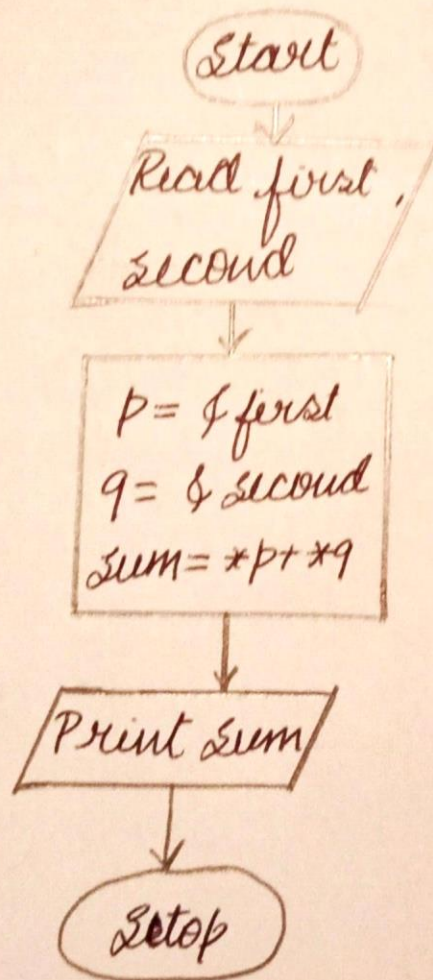 Start
Read first,
second
p = &first
q = &second
sum = *p + *q
Print sum
Stop